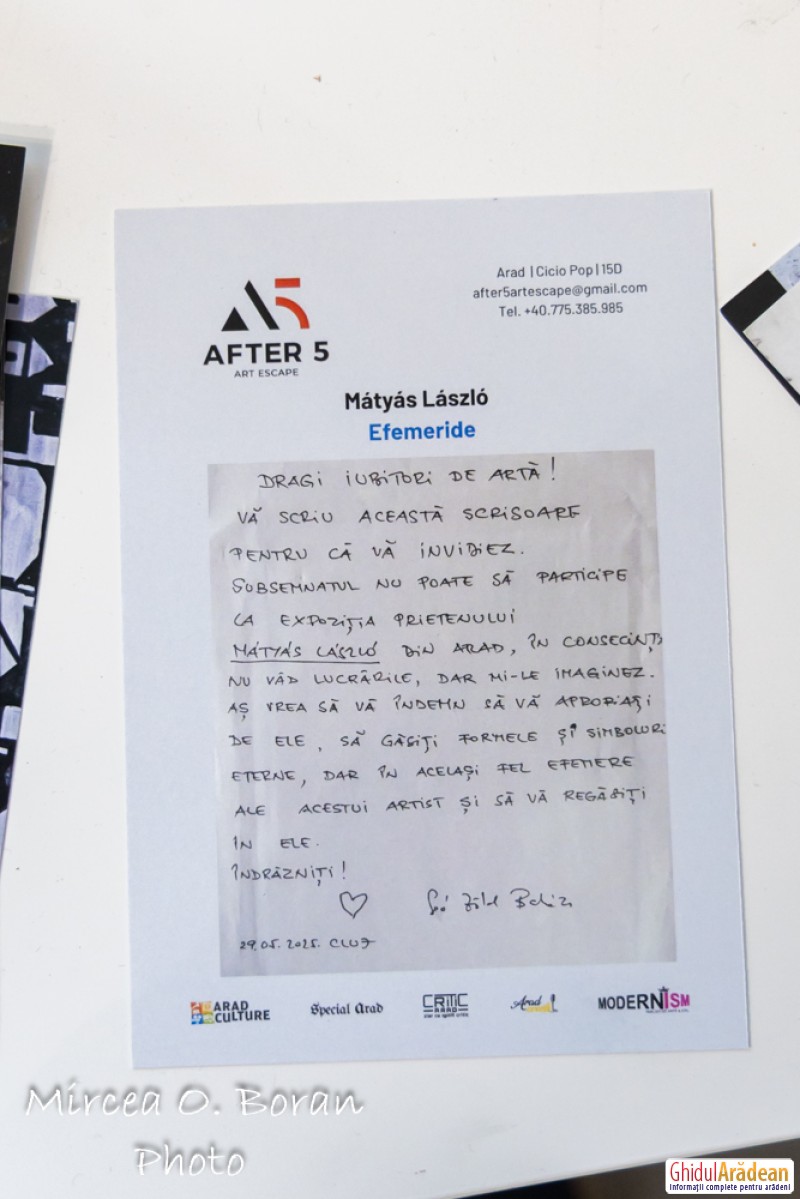 Arad | Cicio Pop | 15D
after5artescape@gmail.com
Tel. +40.775.385.985
A5
AFTER 5
ART ESCAPE
Mátyás László
Efemeride
DRAGI IUBITORI DE ARTĂ!
VĂ SCRIU ACEASTĂ SCRISOARE
PENTRU CĂ VĂ INVIDIEZ.
SUBSEMNATUL NU POATE SĂ PARTICIPE
LA EXPOZIȚIA PRIETENULUI
MÁTYÁS LÁSZLÓ DIN ARAD, ÎN CONSECINȚĂ
NU VĂD LUCRĂRILE, DAR MI-LE IMAGINEZ.
AȘ VREA SĂ VĂ ÎNDEMN SĂ VĂ APROPIAȚI
DE ELE, SĂ GĂSIȚI FORMELE ȘI SIMBOLURI
ETERNE, DAR ÎN ACELAȘI FEL EFEMERE
ALE ACESTUI ARTIST ȘI SĂ VĂ REGĂSIȚI
ÎN ELE.
ÎNDRĂZNIȚI!
29.05.2025. CLUJ
ARAD CULTURE
Special Arad
CRITIC ARAD
Arad
MODERNISM
Mircea O. Boran
Photo
GhidulArădean
Informații complete pentru arădeni